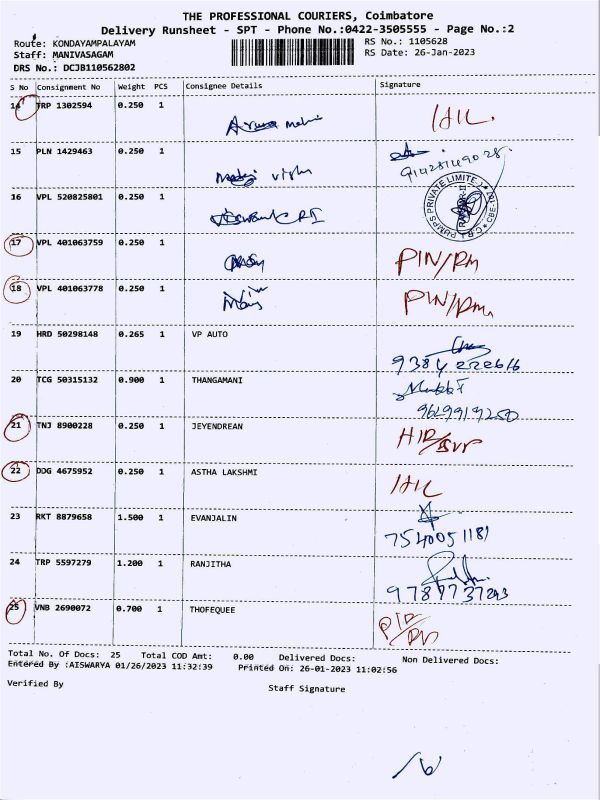 THE PROFESSIONAL COURIERS, Coimbatore
Delivery Runsheet - SPT - Phone No.:0422-3505555 - Page No.:2
Route: KONDAYAMPALAYAM RS No.: 1105628
Staff: MANIVASAGAM RS Date: 26-Jan-2023
DRS No.: DCJB110562802
S No Consignment No Weight PCS Consignee Details Signature
14 TRP 1302594 0.250 1
15 PLN 1429463 0.250 1
16 VPL 520825801 0.250 1
PUMPS PRIVATE LIMITED
17 VPL 401063759 0.250 1 PIN/RM
18 VPL 401063778 0.250 1
19 HRD 50298148 0.265 1 VP AUTO
9384222616
20 TCG 50315132 0.900 1 THANGAMANI
9629919250
21 TNJ 8900228 0.250 1 JEYENDREAN
22 DDG 4675952 0.250 1 ASTHA LAKSHMI
23 RKT 8879658 1.500 1 EVANJALIN
7540051181
24 TRP 5597279 1.200 1 RANJITHA
9787737293
25 VNB 2690072 0.700 1 THOFEQUEE
Total No. Of Docs: 25 Total COD Amt: 0.00 Delivered Docs: Non Delivered Docs:
Entered By :AISWARYA 01/26/2023 11:32:39 Printed On: 26-01-2023 11:02:56
Verified By Staff Signature